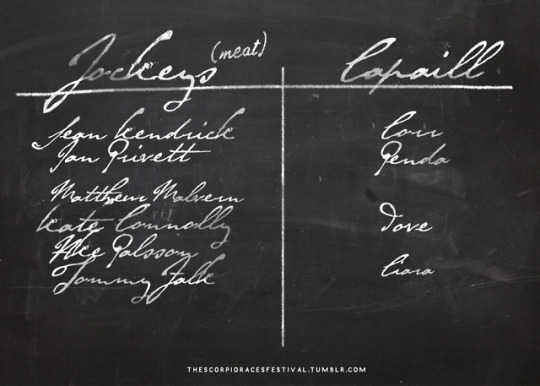 Jockeys (meat) Capaill
Sean Kendrick Corr
Ian Privett Penda
Matthew Malvern
Kate Connolly Dove
Palsson
Tommy Falk Ciara
THESCORPIORACESFESTIVAL.TUMBLR.COM